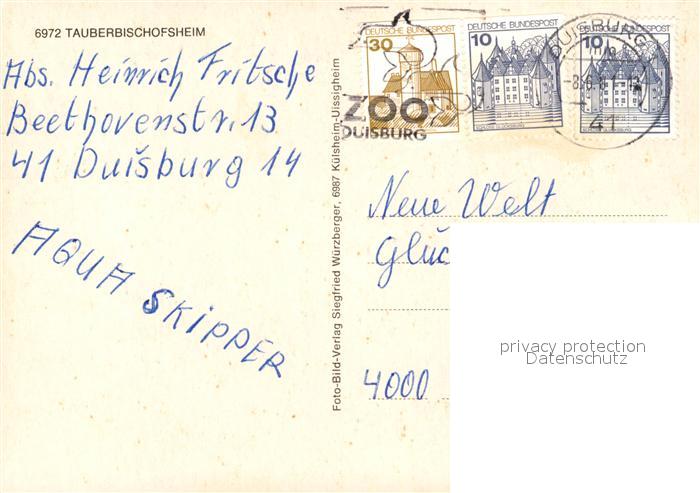 6972 TAUBERBISCHOFSHEIM
Abs. Heinrich Fritsche
Beethovenstr. 13
41 Duisburg 14
AQUA SKIPPER
Foto-Bild-Verlag Siegfried Würzberger, 6987 Külsheim-Uissigheim
DEUTSCHE BUNDESPOST
30
DEUTSCHE BUNDESPOST
10
DEUTSCHE BUNDESPOST
10
ZOO
DUISBURG
DUISBURG
41
Neue Welt
Glüc
4000
privacy protection
Datenschutz